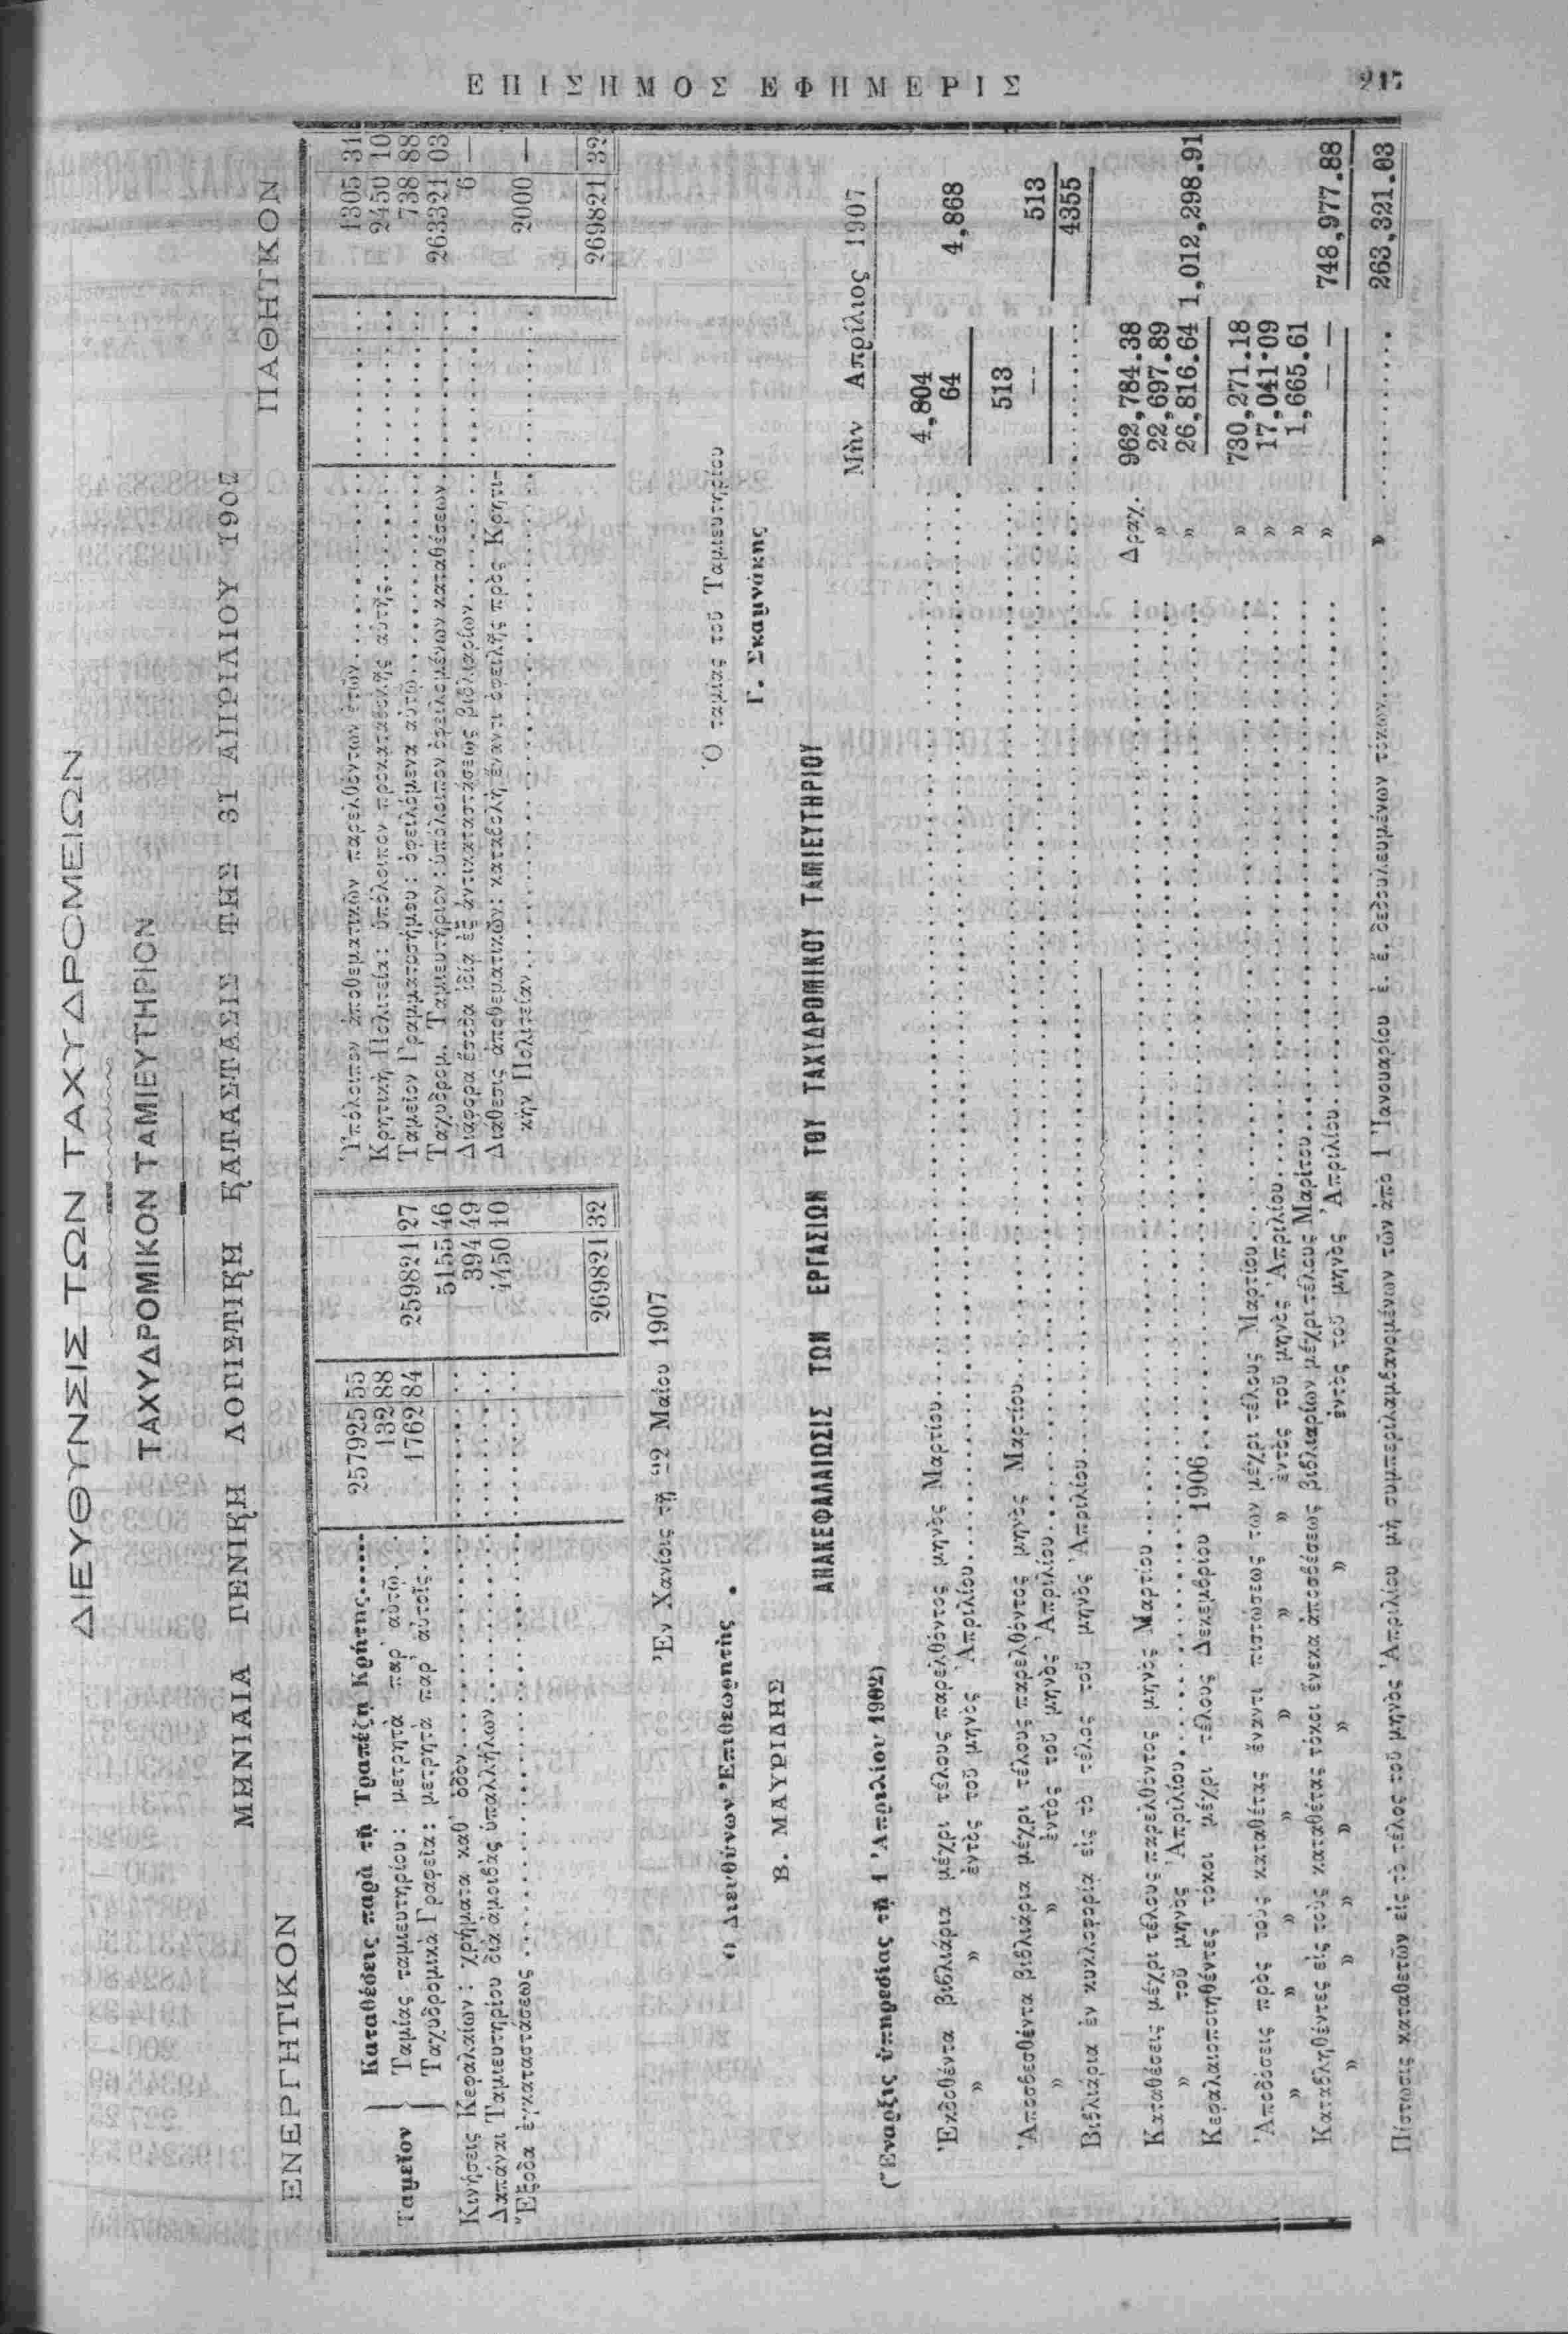 ΕΠΙΣΗΜΟΣ ΕΦΗΜΕΡΙΣ
217
ΔΙΕΥΘΥΝΣΙΣ ΤΩΝ ΤΑΧΥΔΡΟΜΕΙΩΝ
ΤΑΧΥΔΡΟΜΙΚΟΝ ΤΑΜΙΕΥΤΗΡΙΟΝ
ΜΗΝΙΑΙΑ ΓΕΝΙΚΗ ΛΟΓΙΣΤΙΚΗ ΚΑΤΑΣΤΑΣΙΣ ΤΗΣ 31 ΑΠΡΙΛΙΟΥ 1907
ΕΝΕΡΓΗΤΙΚΟΝ
Καταθέσεις παρὰ τῇ Τραπέζῃ Κρήτης...... 257925 55
Ταμεῖον } Ταμίας ταμιευτηρίου: μετρητὰ παρ' αὐτῷ.. 132 88
Ταχυδρομικὰ Γραφεῖα: μετρητὰ παρ' αὐτοῖς... 1762 84 259821 27
Κινήσεις Κεφαλαίων: χρήματα καθ' ὁδόν........ 5155 46
Δαπάναι Ταμιευτηρίου διὰ ἀμοιβὰς ὑπαλλήλων........ 394 49
Ἔξοδα ἐγκαταστάσεως........ 4450 10
269821 32
ΠΑΘΗΤΙΚΟΝ
Ὑπόλοιπον ἀποθεματικῶν παρελθόντων ἐτῶν........ 1305 31
Κρητικὴ Πολιτεία: ὑπόλοιπον προκαταβολῆς αὐτῆς........ 2450 10
Ταμεῖον Γραμματοσήμου: ὀφειλόμενα αὐτῷ........ 738 88
Ταχυδρομ. Ταμιευτήριον: ὑπόλοιπον ὀφειλομένων καταθέσεων. 263321 03
Διάφορα ἔσοδα ἰδίᾳ ἐξ ἀντικαταστάσεως βιβλιαρίων........ 6 —
Διάθεσις ἀποθεματικῶν: καταβολὴ ἔναντι ὀφειλῆς πρὸς Κρητι-
κὴν Πολιτείαν........ 2000 —
269821 32
Ἐν Χανίοις τῇ 22 Μαΐου 1907
Ὁ Διευθύνων Ἐπιθεωρητὴς
Β. ΜΑΥΡΙΔΗΣ
Ὁ ταμίας τοῦ Ταμιευτηρίου
Γ. Σκαμνάκης
ΑΝΑΚΕΦΑΛΑΙΩΣΙΣ ΤΩΝ ΕΡΓΑΣΙΩΝ ΤΟΥ ΤΑΧΥΔΡΟΜΙΚΟΥ ΤΑΜΙΕΥΤΗΡΙΟΥ
(Ἔναρξις ὑπηρεσίας τῇ 1 Ἀπριλίου 1902)
Μὴν Ἀπρίλιος 1907
Ἐκδοθέντα βιβλιάρια μέχρι τέλους παρελθόντος μηνὸς Μαρτίου........ 4,804
» » ἐντὸς τοῦ μηνὸς Ἀπριλίου........ 64 4,868
Ἀποσβεσθέντα βιβλιάρια μέχρι τέλους παρελθόντος μηνὸς Μαρτίου........ 513
» » ἐντὸς τοῦ μηνὸς Ἀπριλίου........ -- 513
Βιβλιάρια ἐν κυκλοφορίᾳ εἰς τὸ τέλος τοῦ μηνὸς Ἀπριλίου........ 4355
Καταθέσεις μέχρι τέλους παρελθόντος μηνὸς Μαρτίου........ Δραχ. 962,784.38
» τοῦ μηνὸς Ἀπριλίου........ » 22,697.89
Κεφαλαιοποιηθέντες τόκοι μέχρι τέλους Δεκεμβρίου 1906........ » 26,816.64 1,012,298.91
Ἀποδόσεις πρὸς τοὺς καταθέτας ἔναντι πιστώσεως των μέχρι τέλους Μαρτίου........ » 730,271.18
» » » » » » ἐντὸς τοῦ μηνὸς Ἀπριλίου........ » 17,041.09
Καταβληθέντες εἰς τοὺς καταθέτας τόκοι ἕνεκα ἀποσβέσεως βιβλιαρίων μέχρι τέλους Μαρτίου........ » 1,665.61
» » » » » » ἐντὸς τοῦ μηνὸς Ἀπριλίου........ » — — 748,977.88
Πίστωσις καταθετῶν εἰς τὸ τέλος τοῦ μηνὸς Ἀπριλίου μὴ συμπεριλαμβανομένων τῶν ἀπὸ 1 Ἰανουαρίου ἐ. ἔ. δεδουλευμένων τόκων........ » ........ 263,321.03